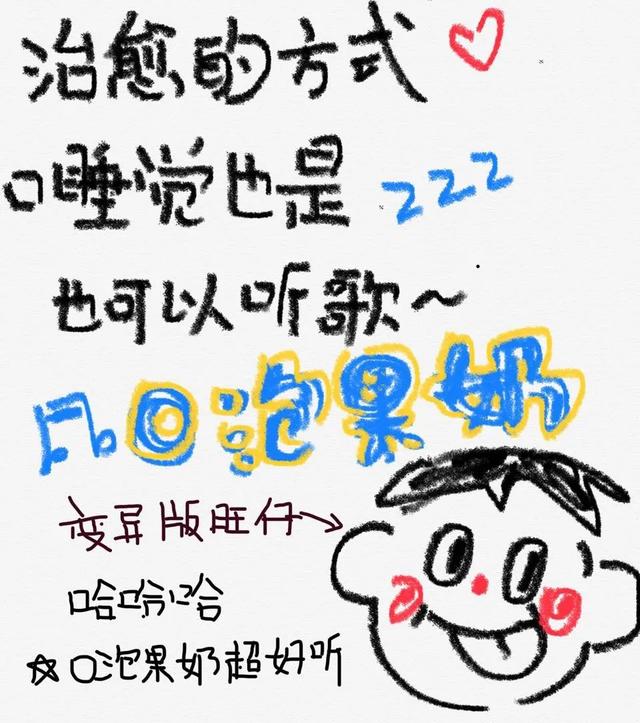 治愈的方式
口睡觉也是 zzz
也可以听歌~
O泡果奶
变异版旺仔→
哈哈哈
☆O泡果奶超好听